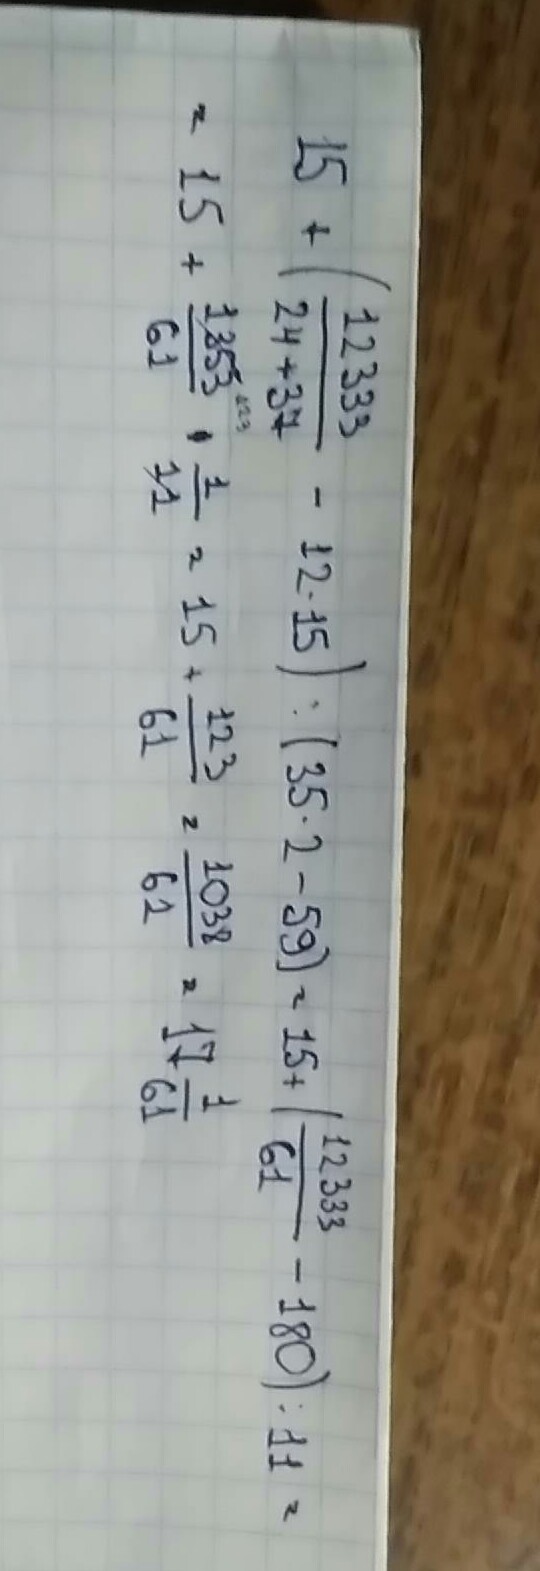 15 + (12333/(24+37) - 12·15) : (35·2-59) = 15 + (12333/61 - 180) : 11 =
= 15 + 1353/61 · 1/11 = 15 + 123/61 = 1038/61 = 17 1/61